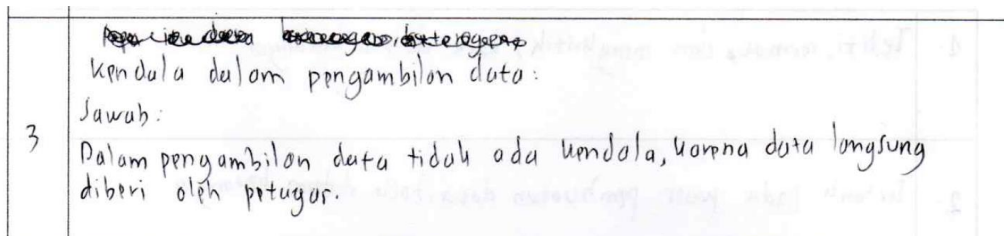 Kendala dalam pengambilan data:
Jawab:
3
Dalam pengambilan data tidak ada kendala, karena data langsung
diberi oleh petugas.